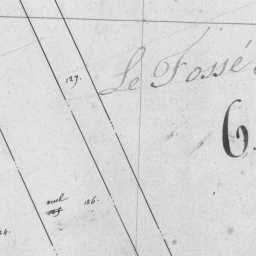 127.
Le Fossé
6
126.
24.